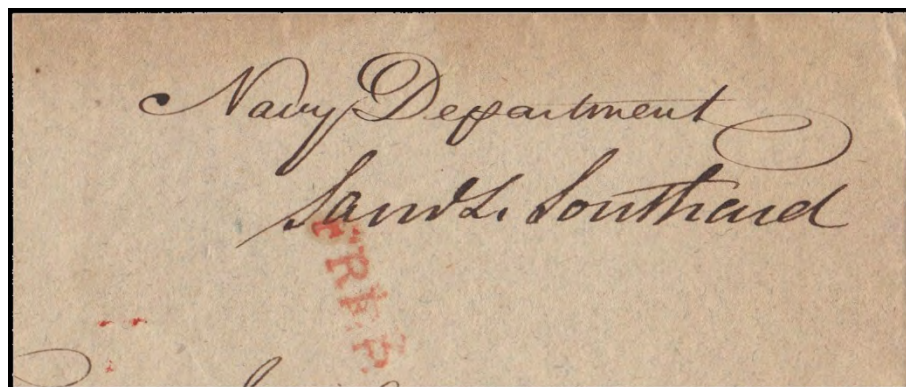 Navy Department
Saml L. Southard
FREE